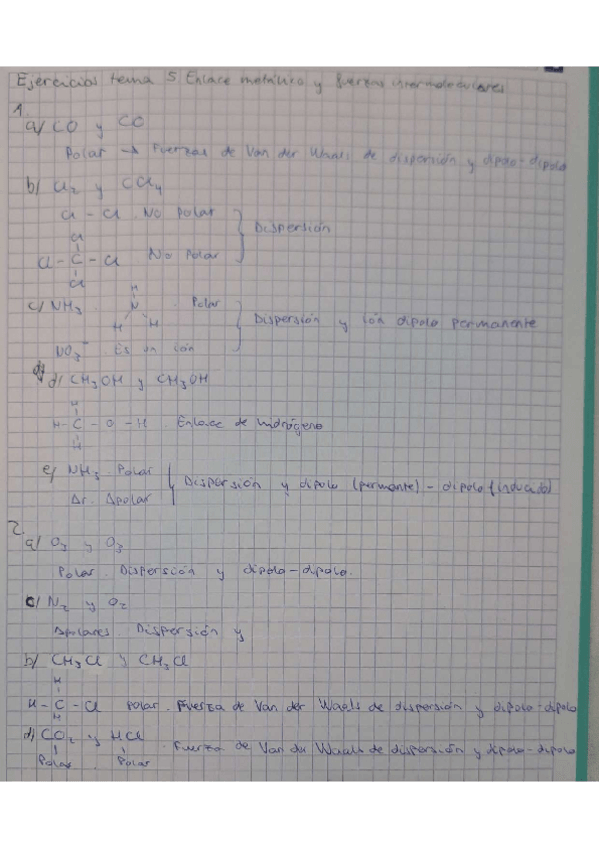 Ejercicios tema 5 Enlace metálico y fuerzas intermoleculares
1.
a) CO y CO
Polar → Fuerzas de Van der Waals de dispersión y dipolo-dipolo
b) Cl2 y CCl4
Cl - Cl . No polar
Cl
Cl - C - Cl No polar
Cl
Dispersión
c) NH3 . Polar
H
N
H H
NO3⁻ . Es un ión
Dispersión y ión dipolo permanente
d) CH3OH y CH3OH
H
H - C - O - H . Enlace de hidrógeno
H
e) NH3 . Polar
Ar . Apolar
Dispersión y dipolo (permante) - dipolo (inducido)
2.
a) O3 y O3
Polar . Dispersión y dipolo-dipolo.
c) N2 y O2
Apolares . Dispersión y
b) CH3Cl y CH3Cl
H
H - C - Cl Polar . Fuerza de Van der Waals de dispersión y dipolo-dipolo
H
d) CO2 y HCl . Fuerza de Van der Waals de dispersión y dipolo-dipolo
Polar Polar